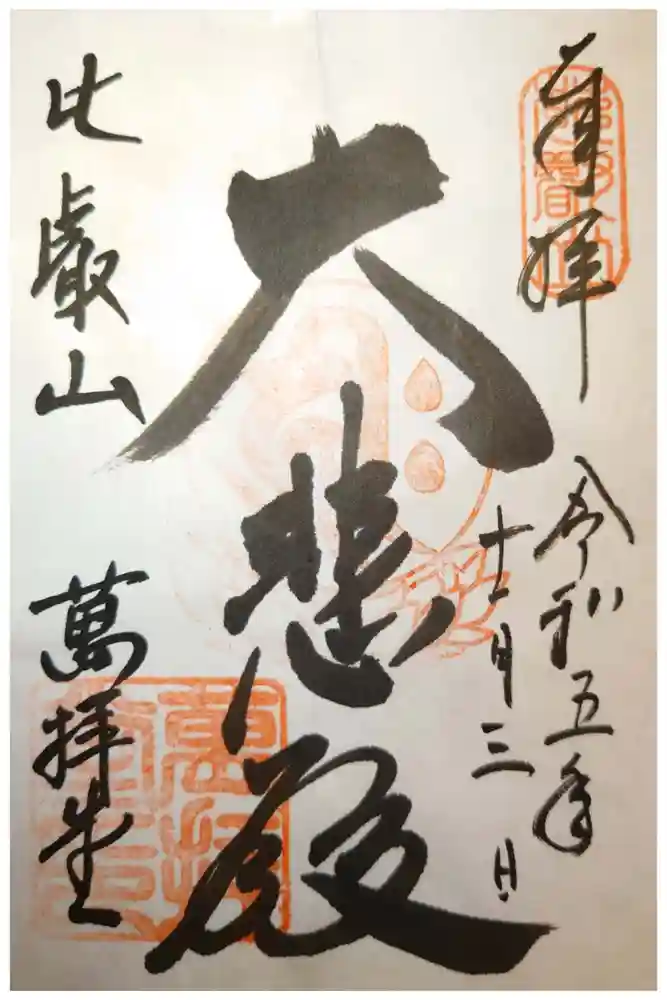 奉拝
令和五年
十二月三日
大悲殿
比叡山 萬拝堂